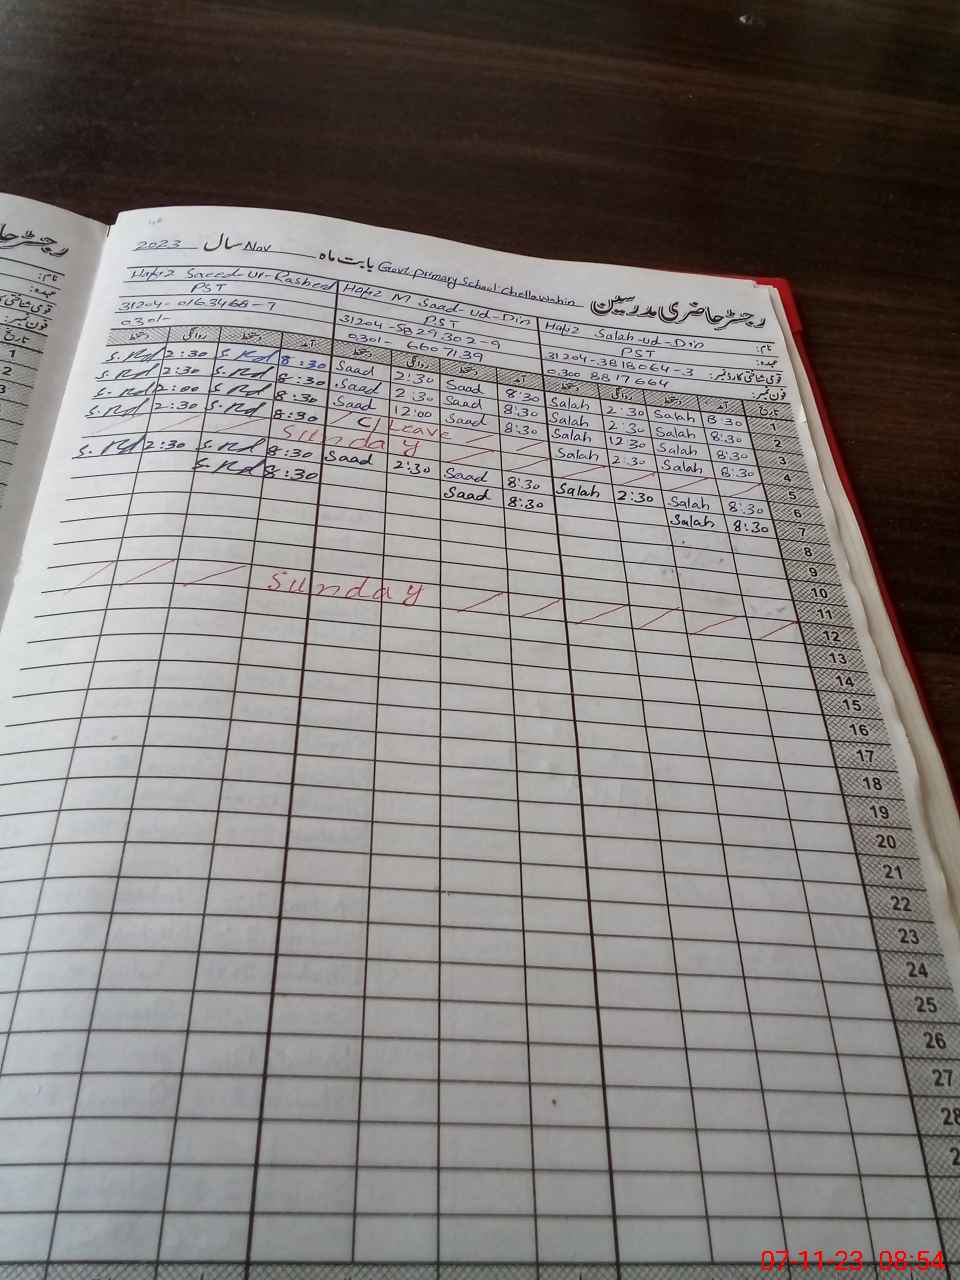 رجسٹر حاضری مدرسین Govt. Primary School Chellawahin بابت ماہ Nov سال 2023
نام: Hafiz Salah-ud-Din Hafiz M Saad-ud-Din Hafiz Saeed-ur-Rasheed
عہدہ: PST PST PST
قومی شناختی کارڈ نمبر: 31204-3818064-3 31204-5829302-9 31204-0163468-7
فون نمبر: 0300 8817664 0301-6607139 0301-
تاریخ آمد دستخط روانگی دستخط آمد دستخط روانگی دستخط آمد دستخط روانگی دستخط
1 8:30 Salah 2:30 Salah 8:30 Saad 2:30 Saad 8:30 S.Rd 2:30 S.Rd
2 8:30 Salah 2:30 Salah 8:30 Saad 2:30 Saad 8:30 S.Rd 2:30 S.Rd
3 8:30 Salah 12:30 Salah 8:30 Saad 12:00 Saad 8:30 S.Rd 2:00 S.Rd
4 8:30 Salah 2:30 Salah C/Leave 8:30 S.Rd 2:30 S.Rd
5 Sunday
6 8:30 Salah 2:30 Salah 8:30 Saad 2:30 Saad 8:30 S.Rd 2:30 S.Rd
7 8:30 Salah 8:30 Saad 8:30 S.Rd
8
9
10
11
12 Sunday
13
14
15
16
17
18
19
20
21
22
23
24
25
26
27
28
2
رجسٹر حا
نام:
عہدہ:
قومی شناختی کا
فون نمبر:
تاریخ
1
2
3
07-11-23 08:54